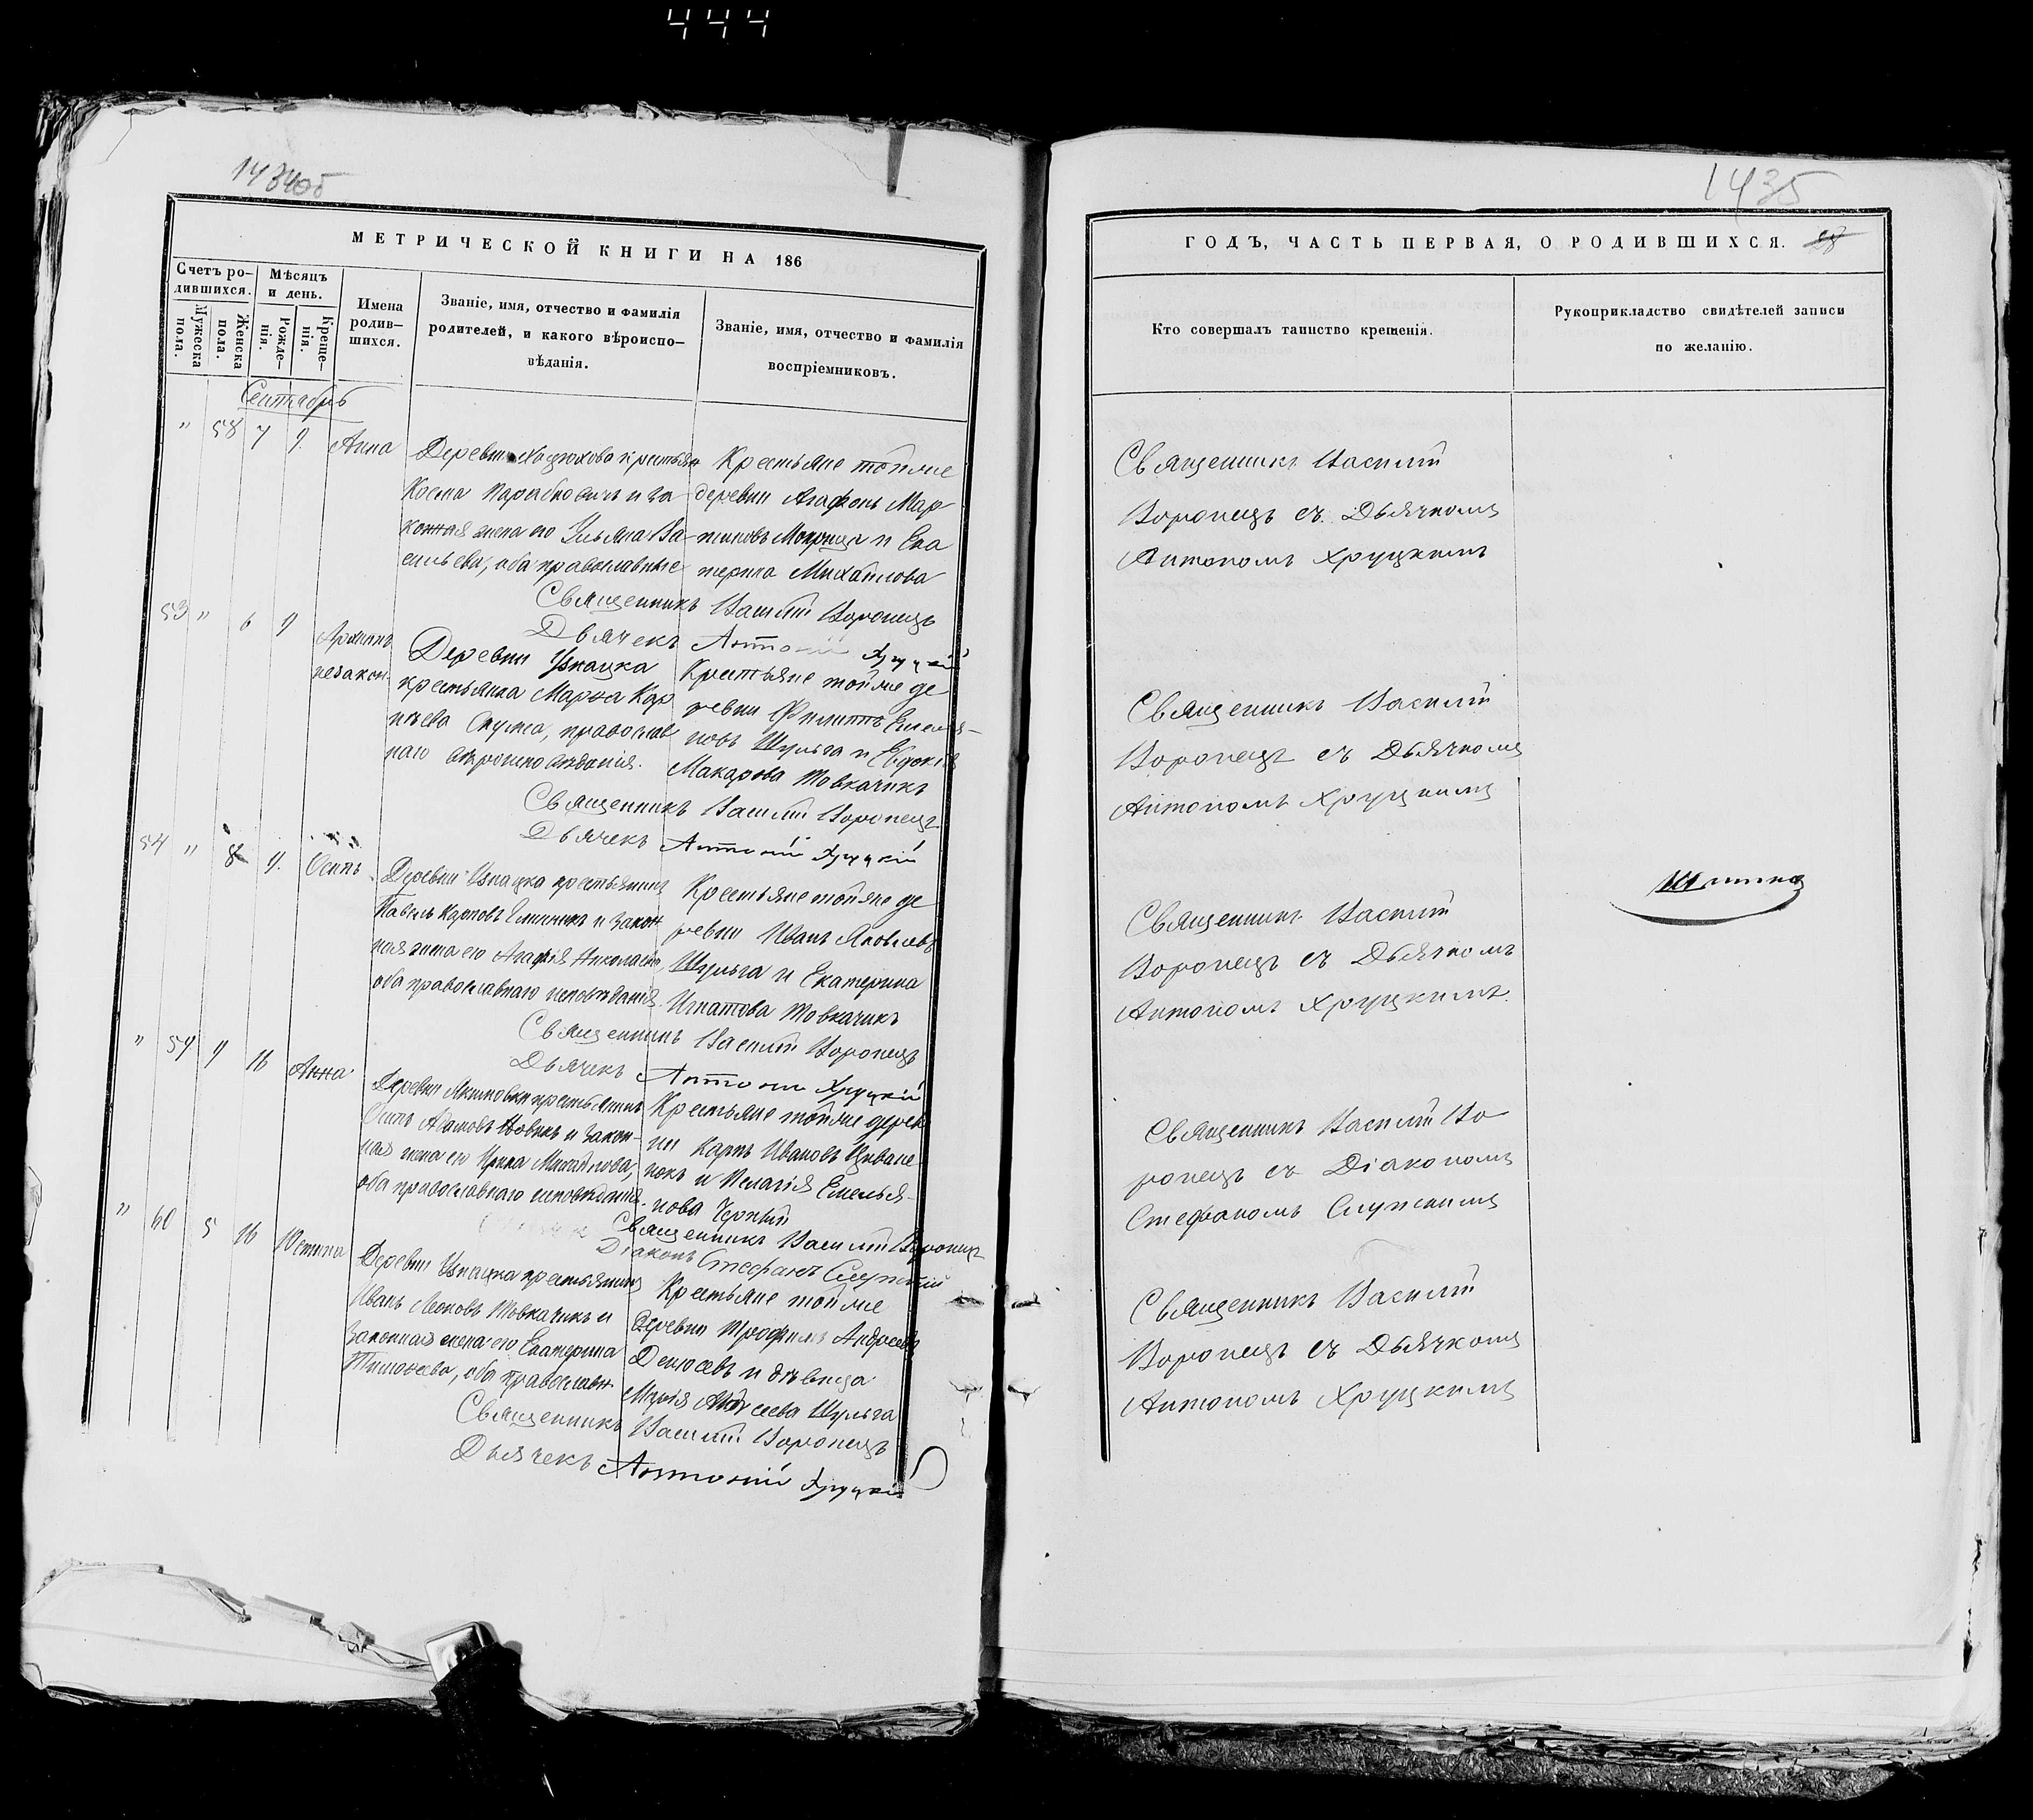 444
1434об
МЕТРИЧЕСКОЙ КНИГИ НА 186
Счетъ ро-
дившихся.
Мѣсяцъ
и день.
Мужеска
пола.
Женска
пола.
Рожде-
нія.
Креще-
нія.
Имена
родив-
шихся.
Званіе, имя, отчество и фамилія
родителей, и какого вѣроиспо-
вѣданія.
Званіе, имя, отчество и фамилія
воспріемниковъ.
Сентябрь
" 58 7 9. Анна
Косма и за-
конная жена его Ульяна Ва-
сильева, оба православные
Крестьяне тойже
деревни Агафонъ Мар-
тиновъ и Ека
терина Михайлова
Священникъ Василій Воронецъ
Дьячекъ Антоній Хруцкій
53 " 6 9
незакон.
Деревни
крестьянка Марѳа Кар
пѣева православ
наго вѣроисповѣданія.
Крестьяне тойже де
ревни Филиппъ Емелья-
новъ Шульга и Евдокія
Макарова Товкачикъ
Священникъ Василій Воронецъ
Дьячекъ Антоній Хруцкій
54 " 8 9. Осипъ
Деревни крестьянинъ
Павелъ Карповъ и закон
ная жена его Агафія Николаева,
оба православнаго исповѣданія.
Крестьяне тойже де
ревни Иванъ Яковлевъ
Шульга и Екатерина
Игнатова Товкачикъ
Священникъ Василій Воронецъ
Дьячекъ Антоній Хруцкій
" 59 9 16 Анна
Деревни Акимовки крестьянинъ
Осипъ Адамовъ и закон-
ная жена его Ирина Михайлова,
оба православнаго исповѣданія.
Крестьяне тойже дерев
ни Карпъ Ивановъ
и Пелагія Емелья-
нова
Священникъ Василій Воронецъ
Діаконъ Стефанъ
" 60 5 16 Юстина
Деревни крестьянинъ
Иванъ Товкачикъ и
законная жена его Екатерина
Тимоѳеева, оба православн
Крестьяне тойже
деревни Трофимъ Андреевъ
и дѣвица
Марія Шульга
Священникъ Василій Воронецъ
Дьячекъ Антоній Хруцкій
1435
ГОДЪ, ЧАСТЬ ПЕРВАЯ, О РОДИВШИХСЯ.
Кто совершалъ таинство крещенія.
Рукоприкладство свидѣтелей записи
по желанію.
Священникъ Василій
Воронецъ съ Дьячкомъ
Антономъ Хруцкимъ
Священникъ Василій
Воронецъ съ Дьячкомъ
Антономъ Хруцкимъ
Священникъ Василій
Воронецъ съ Дьячкомъ
Антономъ Хруцкимъ.
Священникъ Василій Во
ронецъ съ Діакономъ
Стефаномъ
Священникъ Василій
Воронецъ съ Дьячкомъ
Антономъ Хруцкимъ